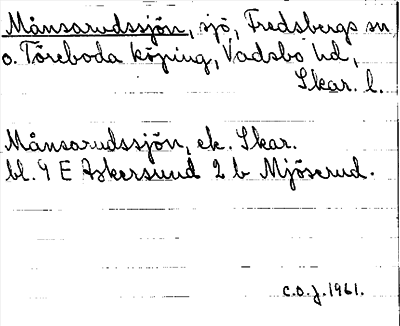 Månsarudssjön, sjö, Fredsbergs sn
o. Töreboda köping, Vadsbo hd,
Skar. l.
Månsarudssjön, ek. Skar.
bl. 9 E Askersund 2 b Mjöserud.
C.O.J. 1961.